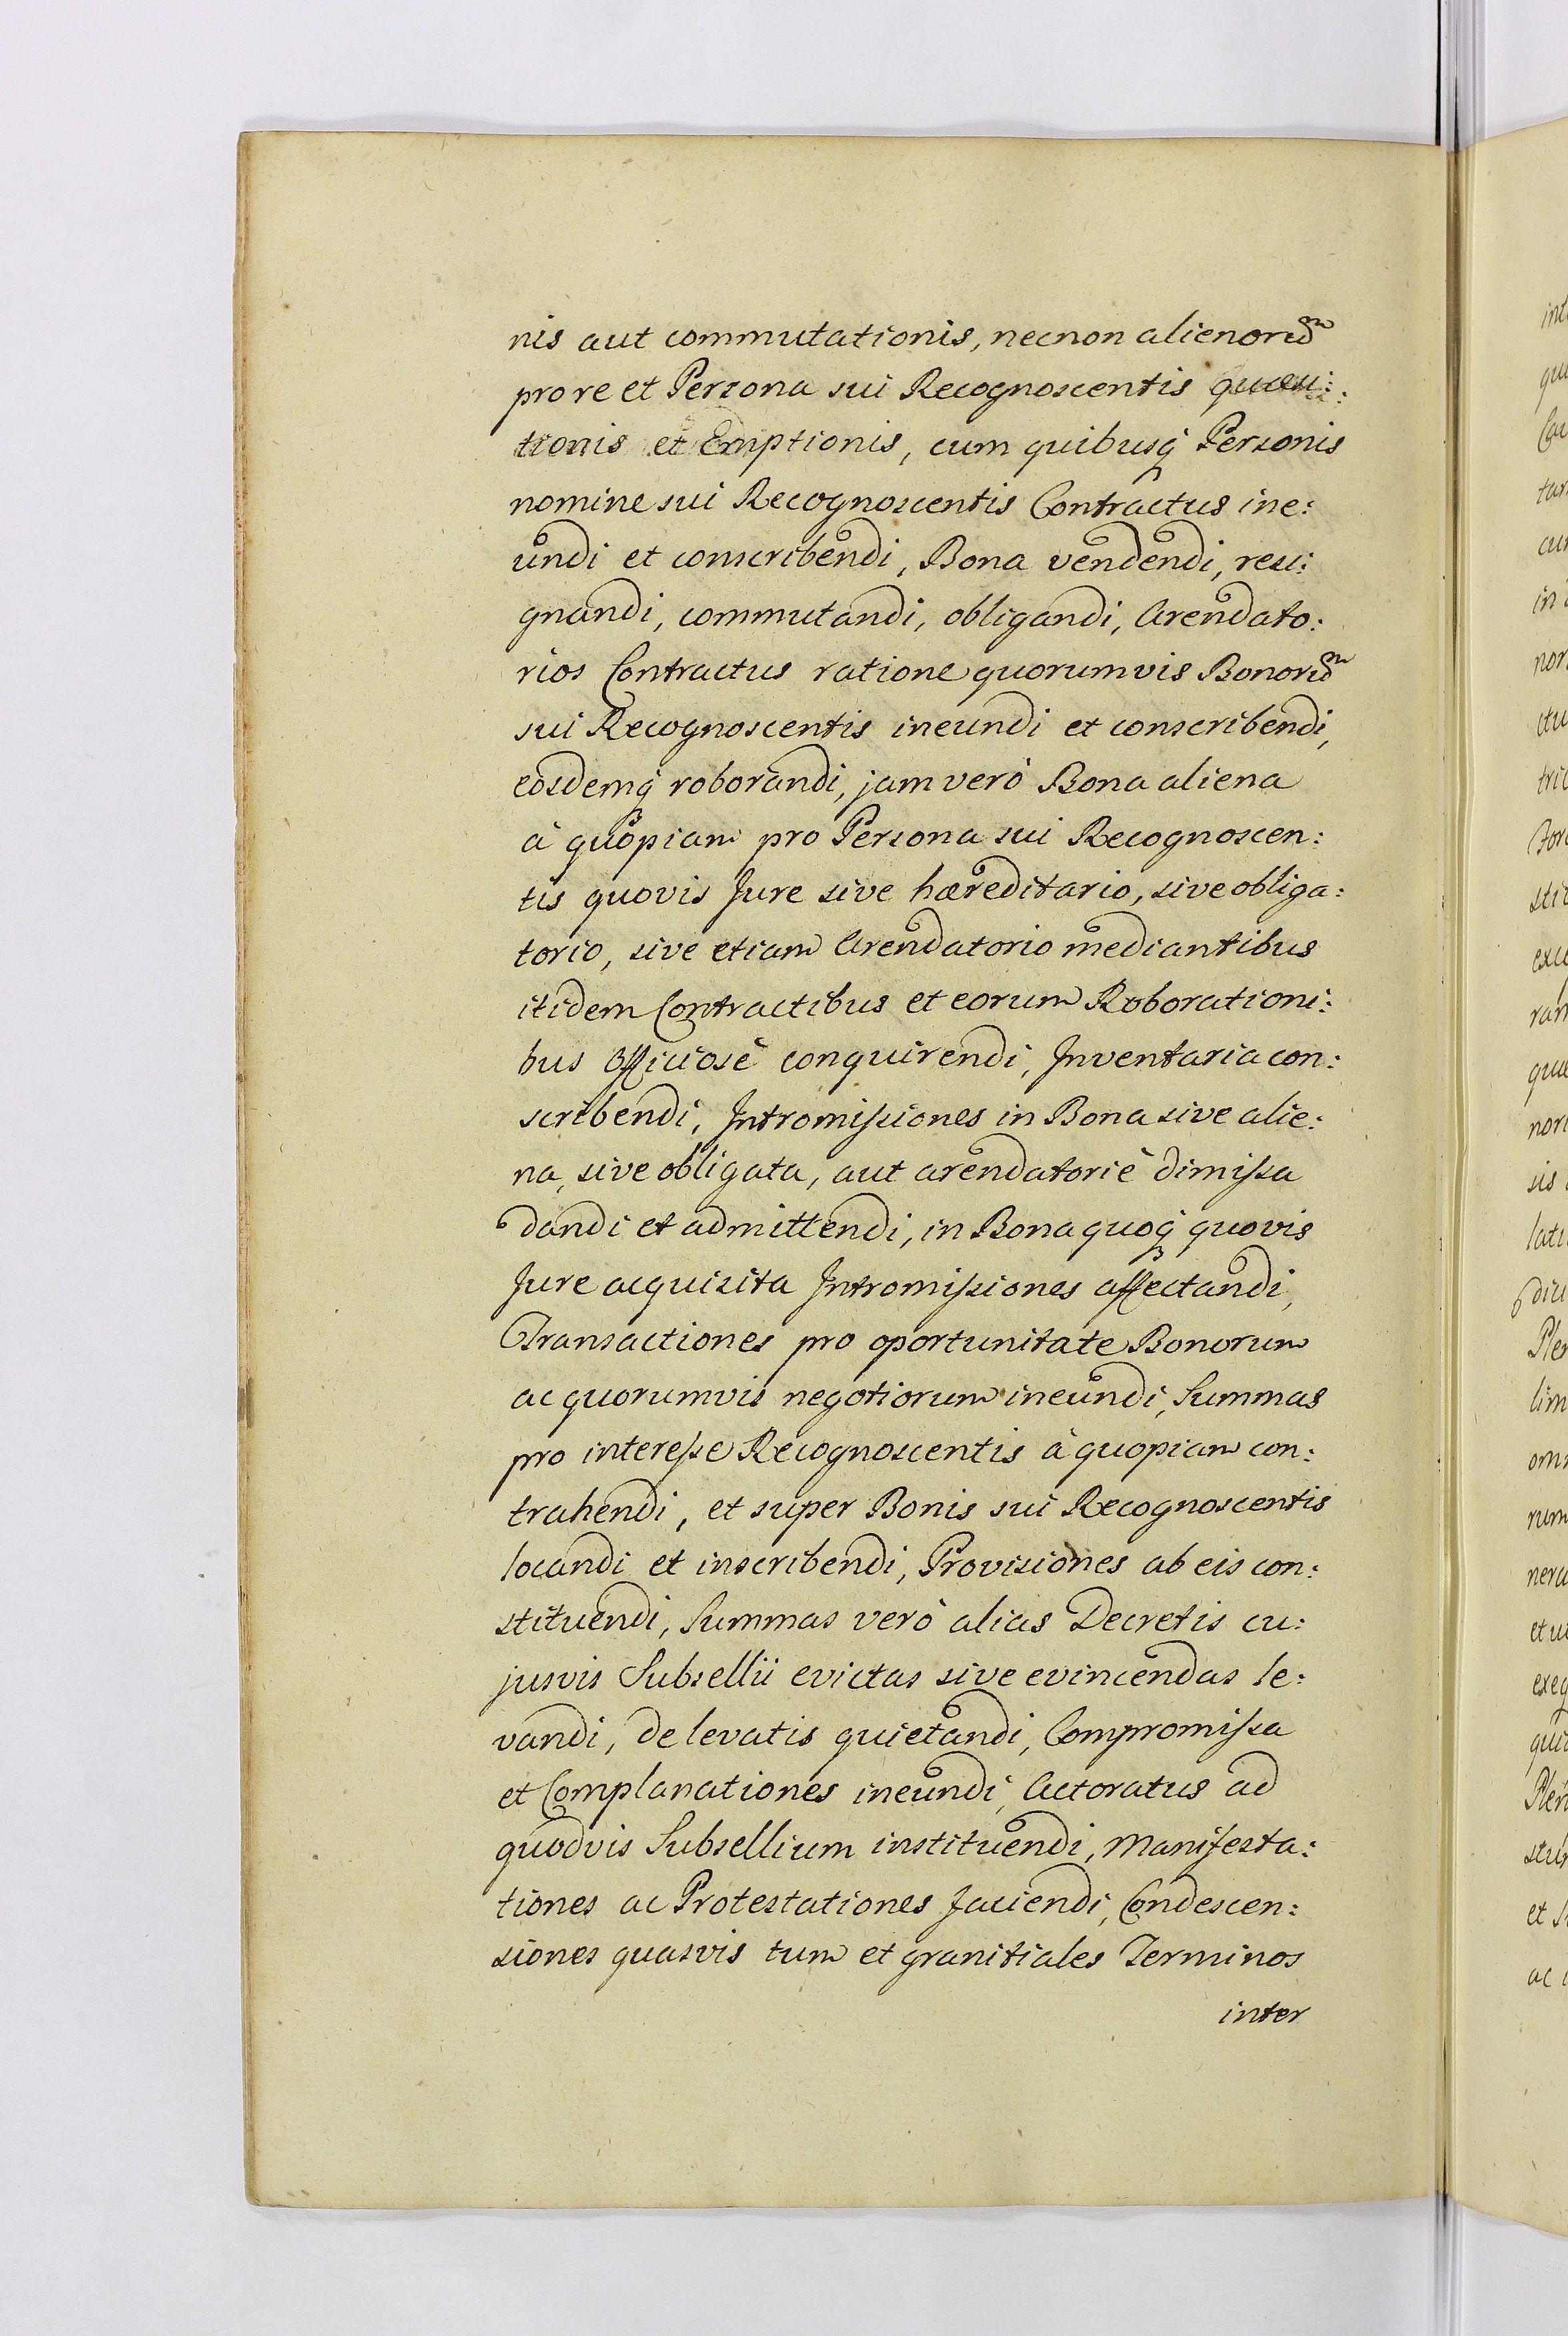 nis aut commutationis, necnon alienorũ
pro re et Persona sui Recognoscentis quæsi:
tionis et Emptionis, cum quibusq́ Personis
nomine sui Recognoscentis Contractus ine:
undi et conscribendi, Bona vendendi, resi:
gnandi, commutandi, obligandi, Arendato:
rios Contractus ratione quorumvis Bonorũ
sui Recognoscentis ineundi et conscribendi,
eosdemq́ roborandi, jam verò Bona aliena
à quopiam pro Persona sui Recognoscen:
tis quovis Jure sive hæreditario, sive obliga:
torio, sive etiam Arendatorio mediantibus
itidem Contractibus et eorum Roborationi:
bus Officiosè conquirendi, Inventaria con:
scribendi, Intromissiones in Bona sive alie:
na, sive obligata, aut arendatoriè dimissa
dandi et admittendi, in Bona quoq́ quovis
Jure acquisita Intromissiones affectandi,
Transactiones pro oportunitate Bonorum
ac quorumvis negotiorum ineundi, Summas
pro interesse Recognoscentis à quopiam con:
trahendi, et super Bonis sui Recognoscentis
locandi et inscribendi, Provisiones ab eis con:
stituendi, Summas verò alias Decretis cu:
jusvis Subsellii evictas sive evincendas le:
vandi, de levatis quietandi, Compromissa
et Complanationes ineundi, Actoratus ad
quodvis Subsellium instituendi, Manifesta:
tiones ac Protestationes faciendi, Condescen:
siones quasvis tum et granitiales Terminos
inter